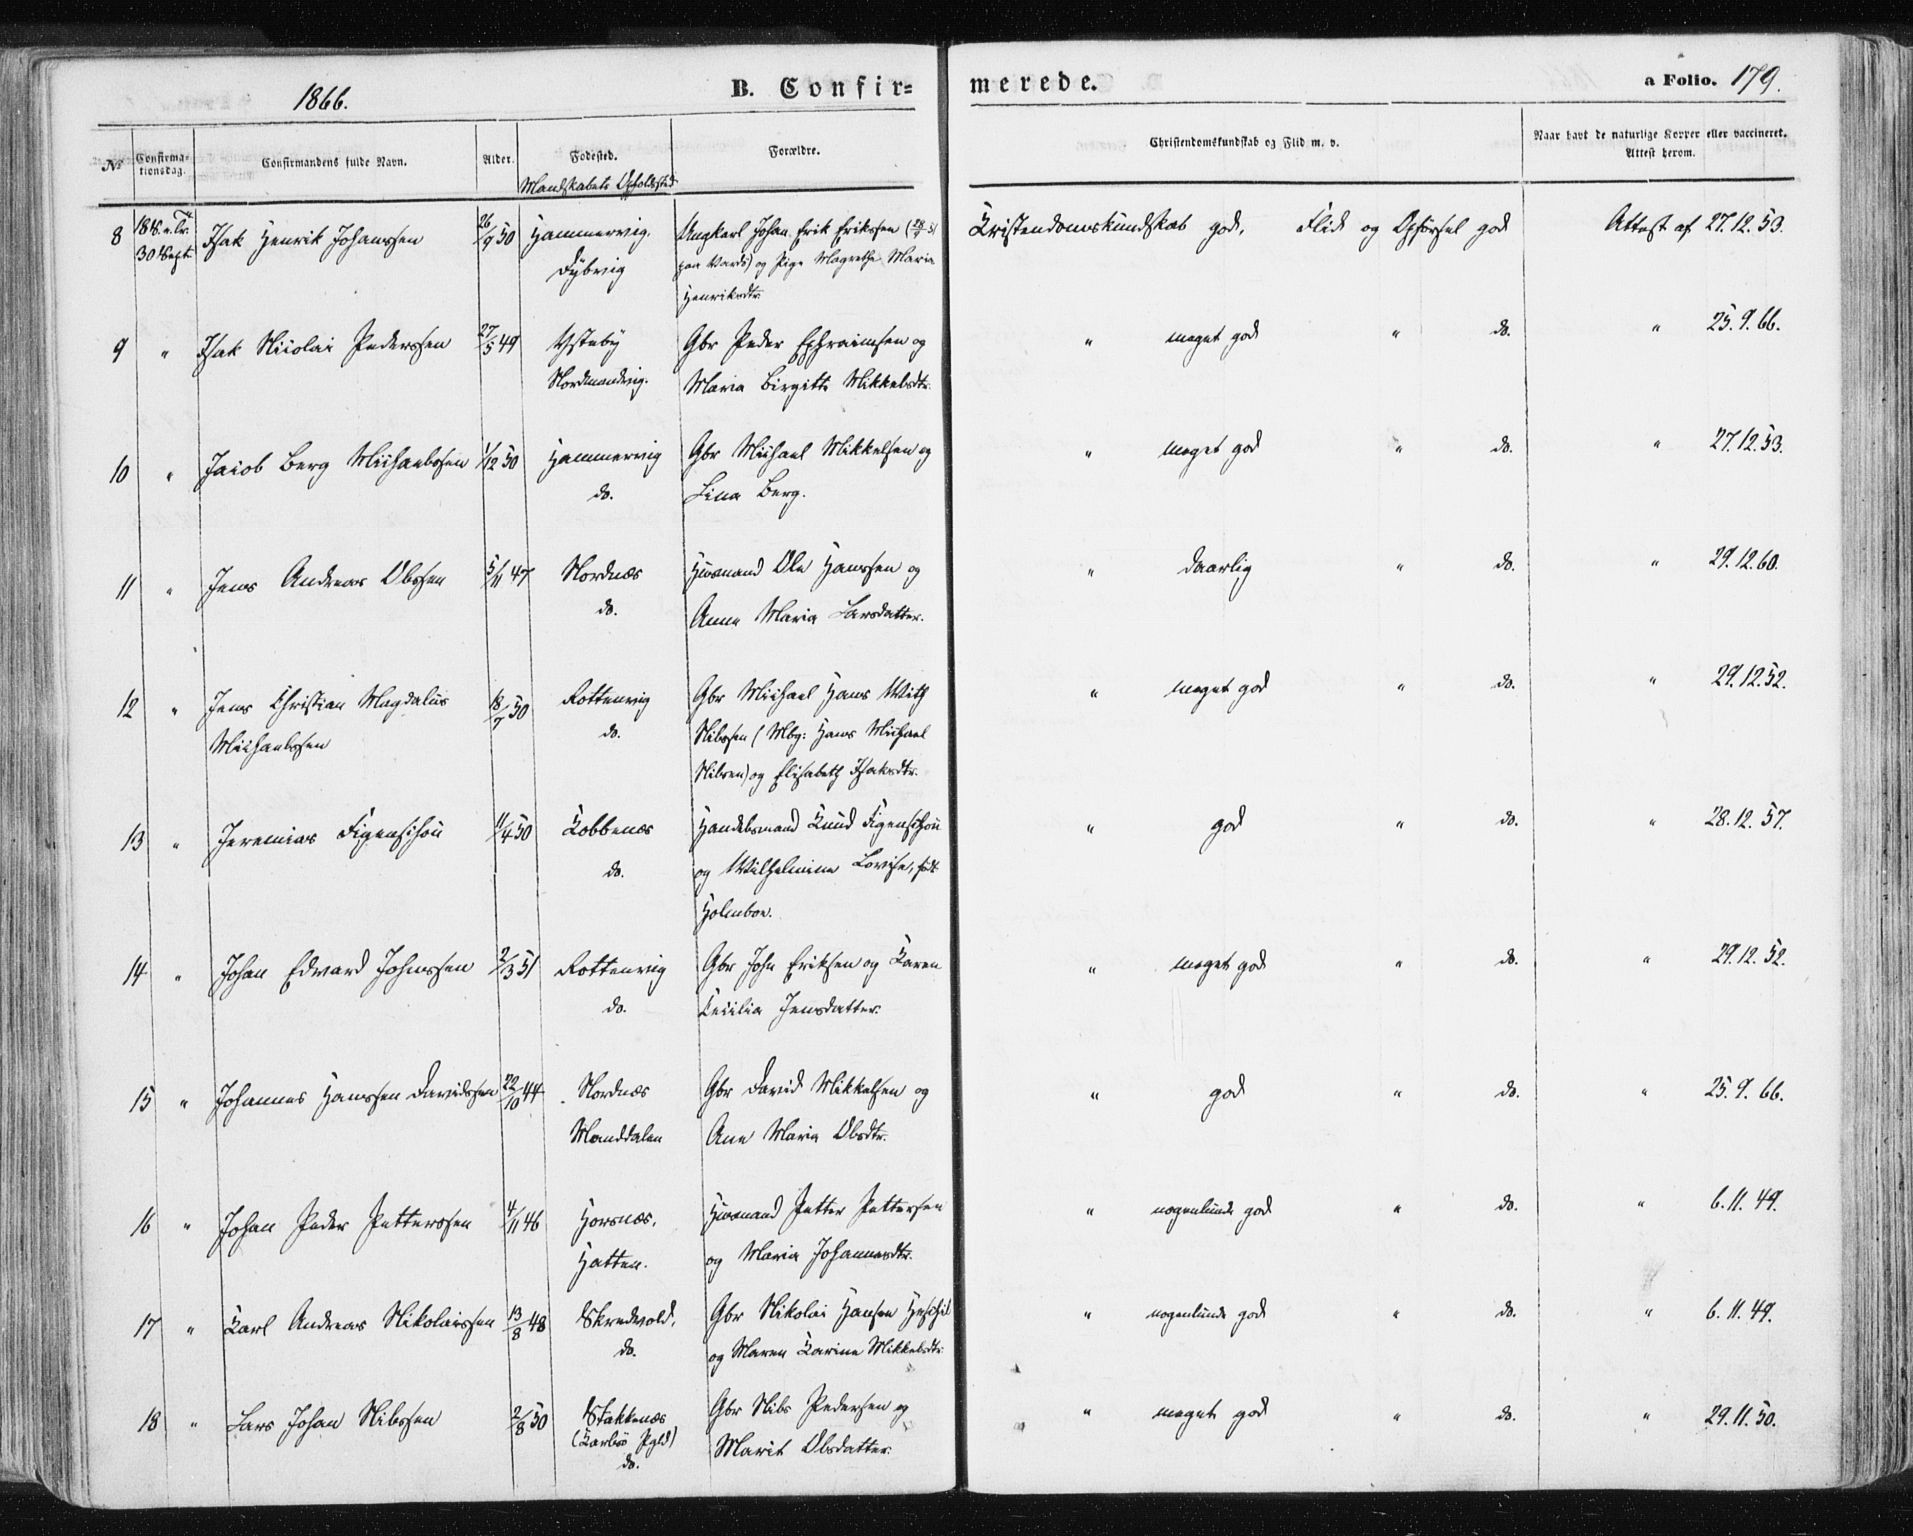 1866.
B. Confir=
merede.
a Folio. 179.
No
Confirmationsdag.
Confirmandens fulde Navn.
Alder.
Fødested.
Forældre.
Christendomskundskab og Flid m. v.
Naar havt de naturlige Kopper eller vaccineret. Attest herom.
Mandskabets Opholdssted
8 18 S. e. Tr. Isak Henrik Johanssen 26/9 50 Hammervig. Ungkarl Johan Erik Erikssen Kristendomskundskab god, Flid og Opførsel god Attest af 27.12.53.
30 Sept. Dybvig paa Vardø) og Pige Magrethe Maria
Henriksdtr
9 " Isak Nicolai Pederssen 27/5 49 Ysteby Gbr Peder Ephraimsen og " meget god " do. " 25.9.66.
Nordmandvig. Maria Birgitte Mikkelsdtr.
10 " Jacob Berg Michaelssen 1/12 50 Hammervig Gbr Michael Mikkelsen og " meget god " do. " 27.12.53.
do. Lina Berg.
11 " Jens Andreas Olssen 5/11 47 Nordnæs Husmand Ole Hanssen og " daarlig " do. " 29.12.60.
do. Anne Maria Larsdatter.
12 " Jens Christian Magdalus 18/7 50 Rottenvig Gbr Michael Hans With " meget god " do. " 29.12.52.
Michaelssen do. Nilssen (Mbg: Hans Michael
Nilsen) og Elisabeth Isaksdtr.
13 " Jeremias Figenschou 11/4 50 Kobbenæs Handelsmand Knud Figenschou " god " do. " 28.12.57.
do. og Wilhelmine Lovise, født
Holmboe.
14 " Johan Edvard Johnssen 2/3 51 Rottenvig Gbr John Eriksen og Karen " meget god " do. " 29.12.52.
do. Cecilia Jensdatter.
15 " Johannes Hanssen Davidssen 22/10 44 Nordnæs Gbr David Mikkelsen og " god " do. " 25.9.66.
Manddalen Ane Maria Olsdtr.
16 " Johan Peder Petterssen 4/11 46 Horsnæs. Husmand Petter Pettersen " nogenlunde god " do. " 6.11.49.
Hatten. og Maria Johannesdtr.
17 " Karl Andreas Nikolaissen 13/8 48 Skredvold. Gbr Nikolai Hansen " nogenlunde god " do. " 6.11.49.
do. og Maren Karine Mikkelsdtr.
18 " Lars Johan Nilssen 2/8 50 Stakkenæs Gbr Nils Pedersen og " meget god " do. " 29.11.50.
(Karlsø Pgld) Marit Olsdatter.
do.